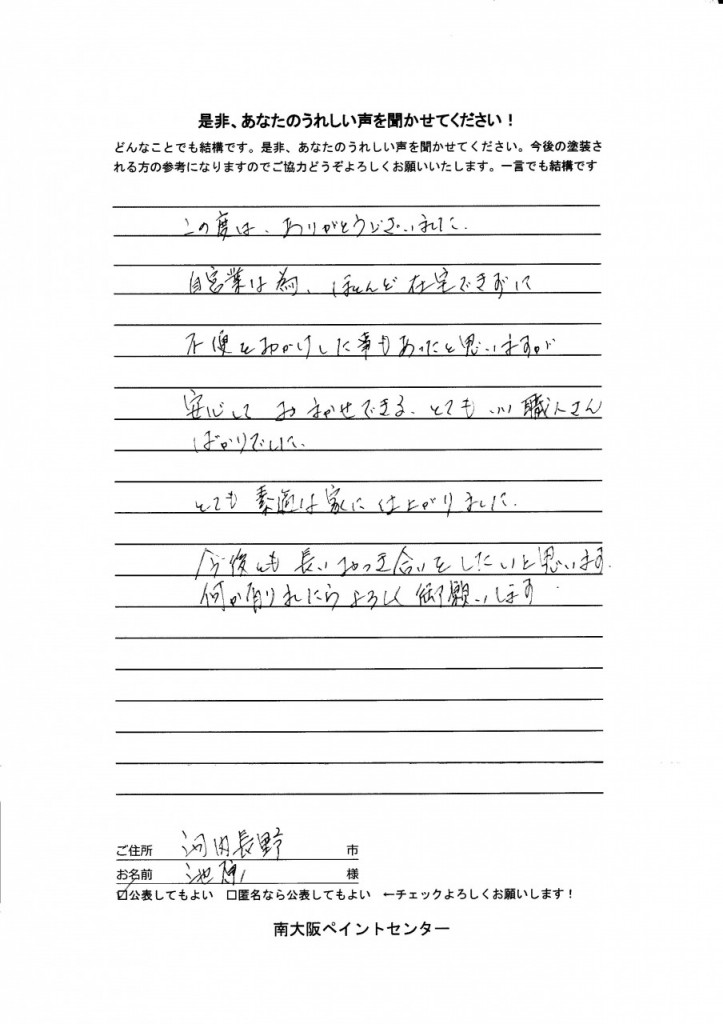 是非、あなたのうれしい声を聞かせてください！
どんなことでも結構です。是非、あなたのうれしい声を聞かせてください。今後の塗装さ
れる方の参考になりますのでご協力どうぞよろしくお願いいたします。一言でも結構です
この度は、ありがとうございました.
自営業な為、ほとんど在宅できずに
不便をおかけした事もあったと思いますが
安心して おまかせできる、とても いい 職人さん
ばかりでした.
とても 素適な家に仕上がりました.
今後とも 長いおつき合いをしたいと思います.
何か有りましたらよろしく御願いします.
ご住所 河内長野 市
お名前 池 様
☑公表してもよい □匿名なら公表してもよい ←チェックよろしくお願いします！
南大阪ペイントセンター